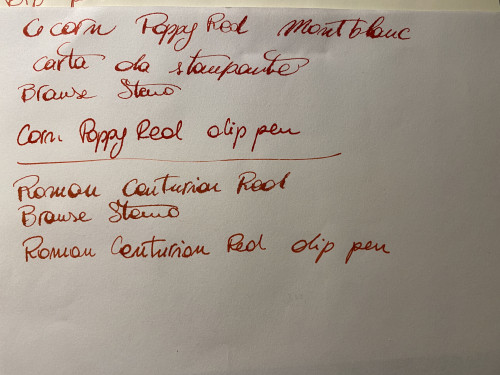 Corn Poppy Red Montblanc
carta da stampante
Brause Steno
Corn Poppy Red dip pen
Roman Centurion Red
Brause Steno
Roman Centurion Red dip pen